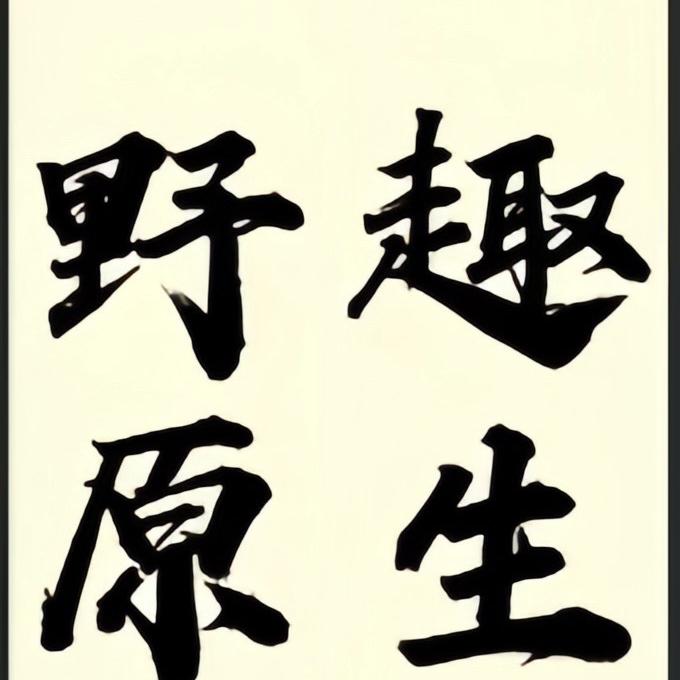 野趣
原生